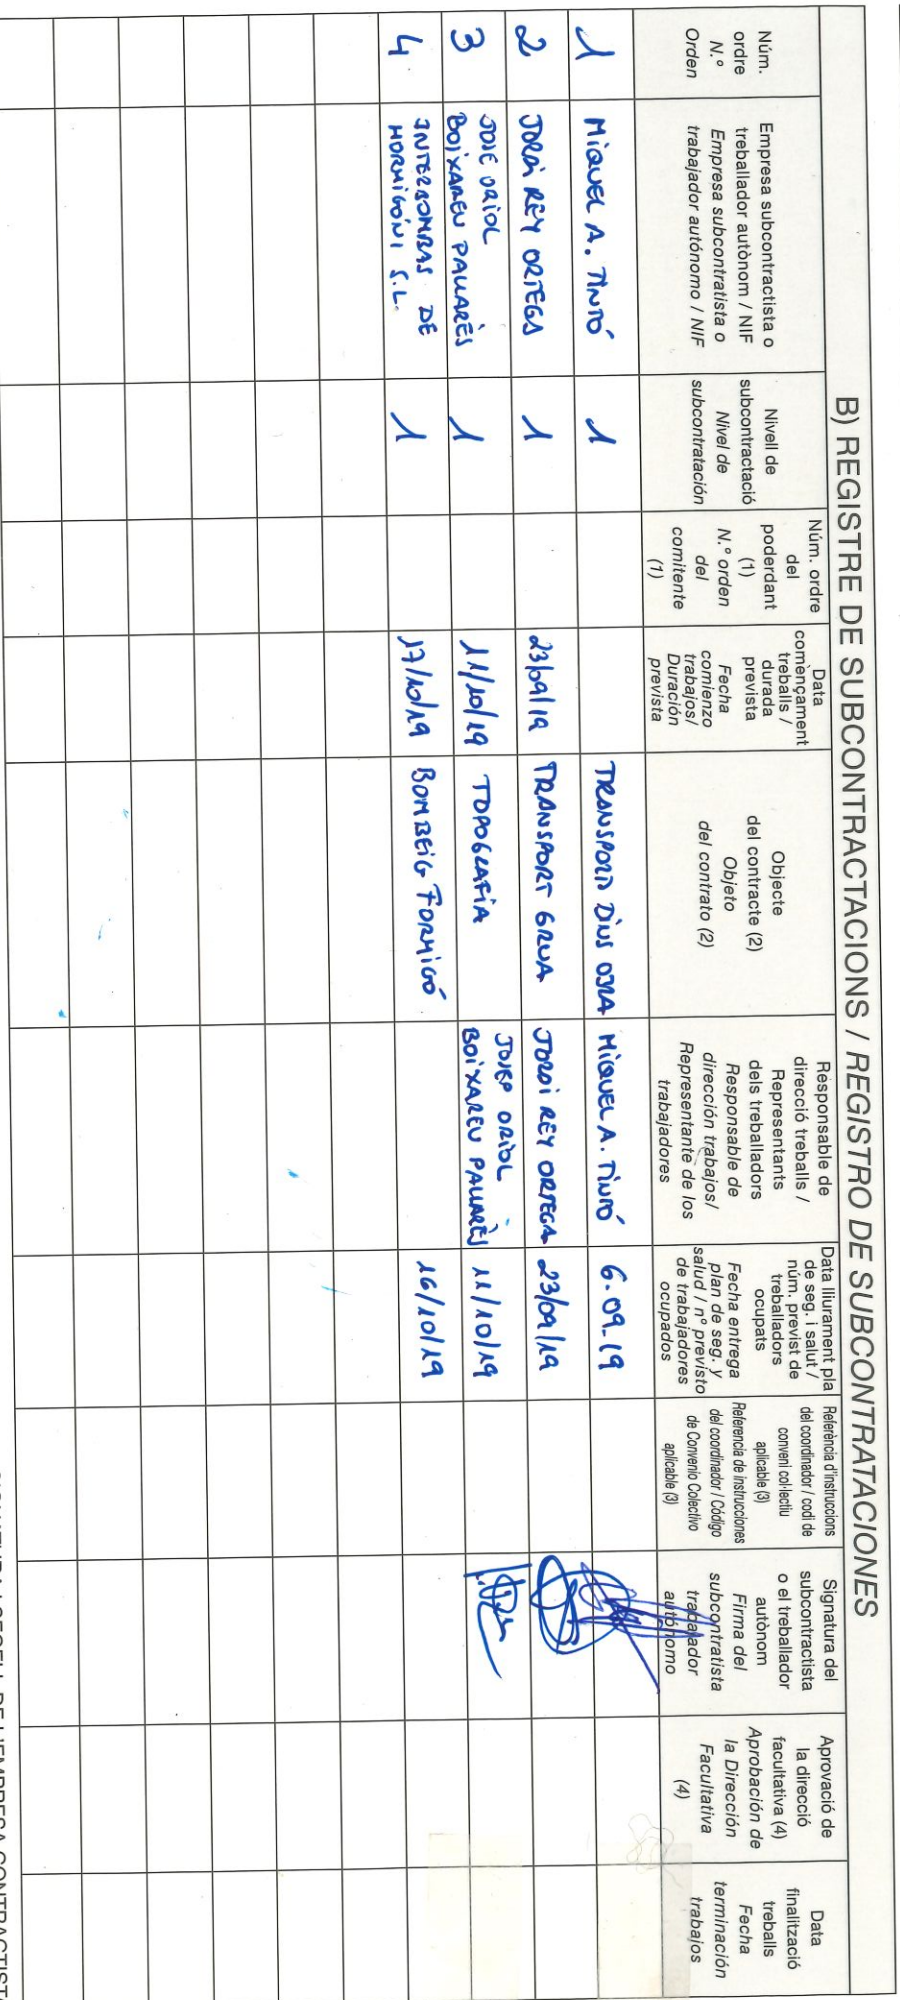 B) REGISTRE DE SUBCONTRACTACIONS / REGISTRO DE SUBCONTRATACIONES
Núm.
ordre
N.º
Orden
Empresa subcontractista o
treballador autònom / NIF
Empresa subcontratista o
trabajador autónomo / NIF
Nivell de
subcontractació
Nivel de
subcontratación
Núm. ordre
del
poderdant
(1)
N.º orden
del
comitente
(1)
Data
començament
treballs /
durada
prevista
Fecha
comienzo
trabajos/
Duración
prevista
Objecte
del contracte (2)
Objeto
del contrato (2)
Responsable de
direcció treballs /
Representants
dels treballadors
Responsable de
dirección trabajos/
Representante de los
trabajadores
Data lliurament pla
de seg. i salut /
núm. previst de
treballadors
ocupats
Fecha entrega
plan de seg. y
salud / nº previsto
de trabajadores
ocupados
Referència d'instruccions
del coordinador / codi de
conveni col·lectiu
aplicable (3)
Referencia de instrucciones
del coordinador / Código
de Convenio Colectivo
aplicable (3)
Signatura del
subcontractista
o el treballador
autònom
Firma del
subcontratista
trabajador
autónomo
Aprovació de
la direcció
facultativa (4)
Aprobación de
la Dirección
Facultativa
(4)
Data
finalització
treballs
Fecha
terminación
trabajos
1
MIQUEL A. TINTÓ
1
TRANSPORT DINS OBRA
MIQUEL A. TINTÓ
6.09.19
2
JORDI REY ORTEGA
1
23/09/19
TRANSPORT GRUA
JORDI REY ORTEGA
23/09/19
3
JOSE ORIOL
BOIXAREU PALLARÈS
1
11/10/19
TOPOGRAFIA
JOSEP ORIOL
BOIXAREU PALLARÈS
11/10/19
4
INTERBOMBAS DE
HORMIGÓN 1 S.L.
1
17/10/19
BOMBEIG FORMIGÓ
16/10/19